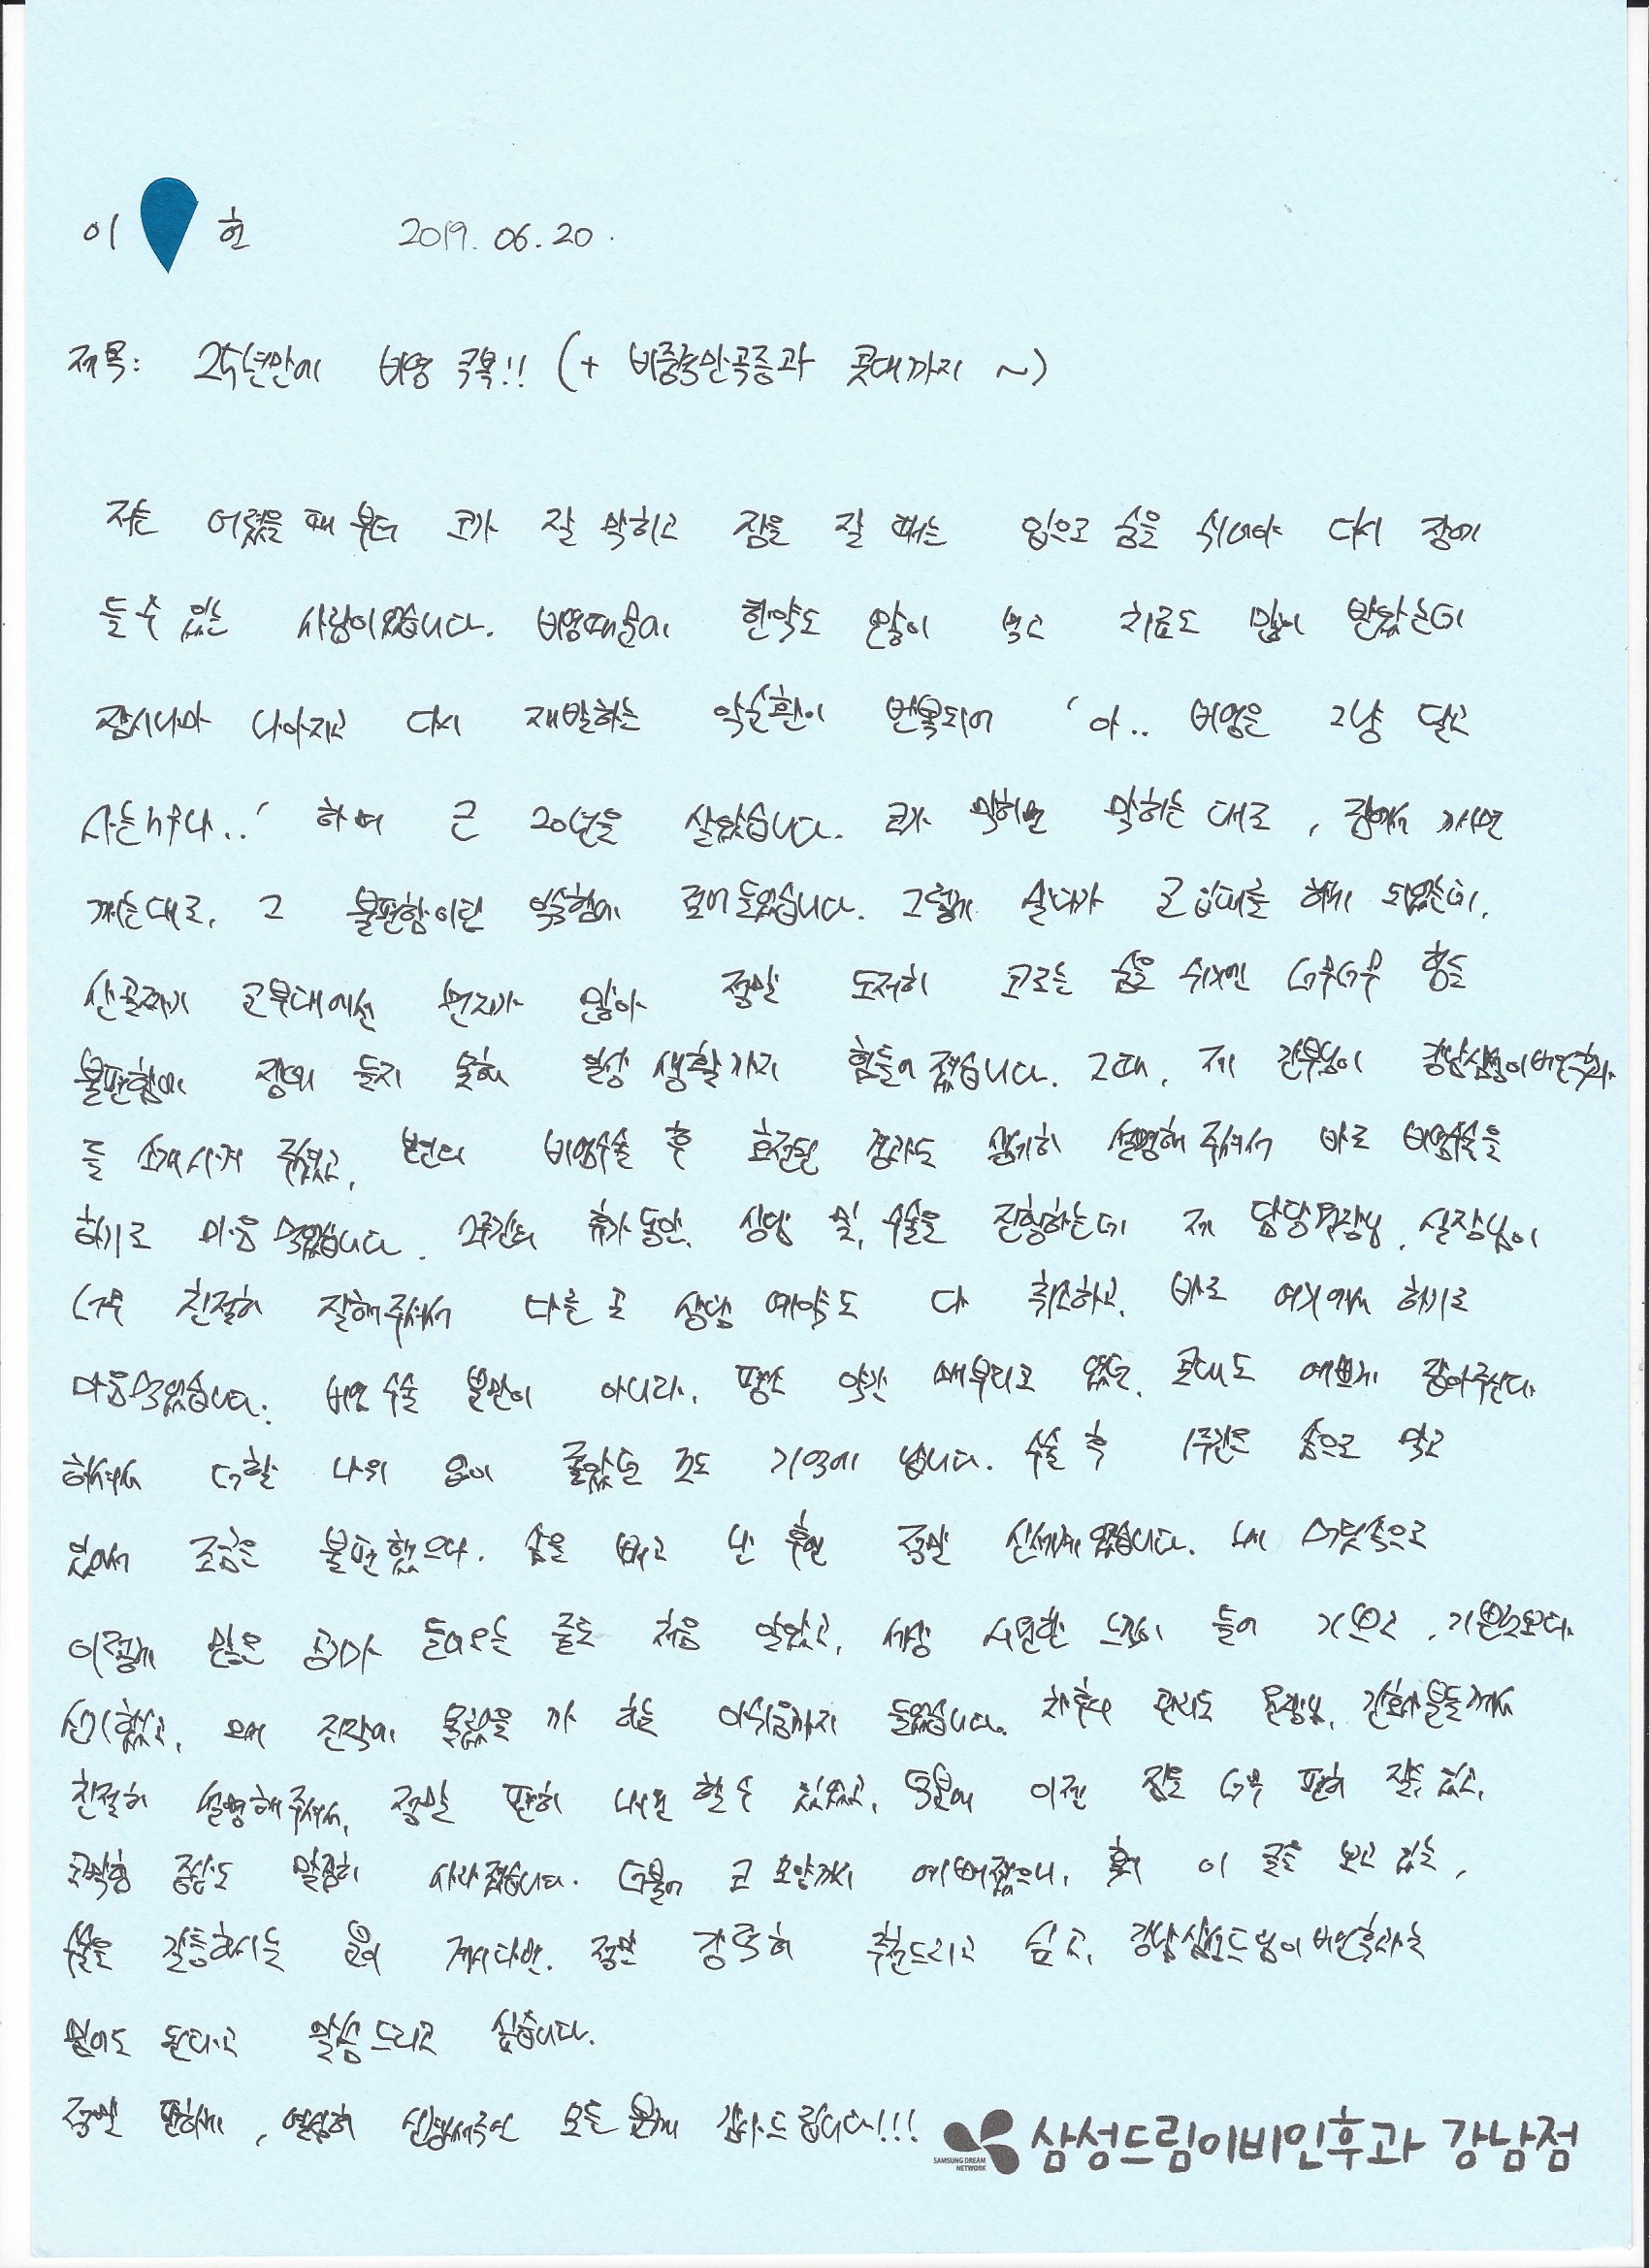 이 헌 2019. 06. 20.
제목: 25년만에 비염 극복!! (+ 비중격만곡증과 콧대까지 ~)
저는 어렸을 때 부터 코가 잘 막히고 잠을 잘 때는 입으로 숨을 쉬어야 다시 잠에
들 수 있는 사람이었습니다. 비염때문에 한약도 많이 먹고 치료도 많이 받았는데
잠시나마 나아지고 다시 재발하는 악순환이 반복되어 '아.. 비염은 그냥 달고
사는거구나..' 하며 근 20년을 살았습니다. 코가 막히면 막히는 대로, 잠에서 깨면
깨는대로, 그 불편함이란 익숙함에 젖어들었습니다. 그렇게 살다가 군 입대를 하게 되었는데,
산골짜기 군부대에선 먼지가 많아 정말 도저히 코로는 숨을 쉬기엔 너무너무 힘든
불편함에 잠에 들지 못해 일상 생활까지 힘들어졌습니다. 그때, 제 간부님이 강남삼성이비인후과
를 소개시켜 주셨고, 본인의 비염수술 후 호전된 경과도 상세히 설명해주셔서 바로 비염수술을
하기로 마음 먹었습니다. 2주간의 휴가 동안, 상담 및, 수술을 진행하는데 제 담당 실장님이
너무 친절히 잘해주셔서 다른 곳 상담 예약도 다 취소하고, 바로 여기에서 하기로
마음먹었습니다. 비염 수술 뿐만이 아니라, 평소 약간 매부리코 였던, 콧대도 예쁘게 잡아주신다
하셔서 더할 나위 없이 좋았던 것도 기억에 남습니다. 수술 후 1주간은 솜으로 막고
있어서 조금은 불편했으나, 솜을 빼고 난 후엔 정말 신세계였습니다. 내 콧속으로
이렇게 많은 공기가 들어오는 줄도 처음 알았고, 세상 시원한 느낌이 들어 기쁘고, 기쁨보다
신기했고, 왜 진작에 몰랐을 까 하는 아쉬움까지 들었습니다. 차후의 관리도 원장님, 간호사분들께서
친절히 설명해주셔서, 정말 편히 내원 할 수 있었고, 이젠 잠을 너무 편히 잘 수 있고,
코막힘 증상도 말끔히 사라졌습니다. 더불어 코 모양까지 예뻐졌으니, 혹시 이 글을 보고 있는,
수술을 갈등하시는 분이 계시다면, 정말 강력히 추천드리고 싶고, 강남삼성드림이비인후과는
믿어도 된다고 말씀드리고 싶습니다.
정말 편하게, 열심히 신경써주신 모든 분께 감사드립니다!!!
SAMSUNG DREAM NETWORK 삼성드림이비인후과 강남점